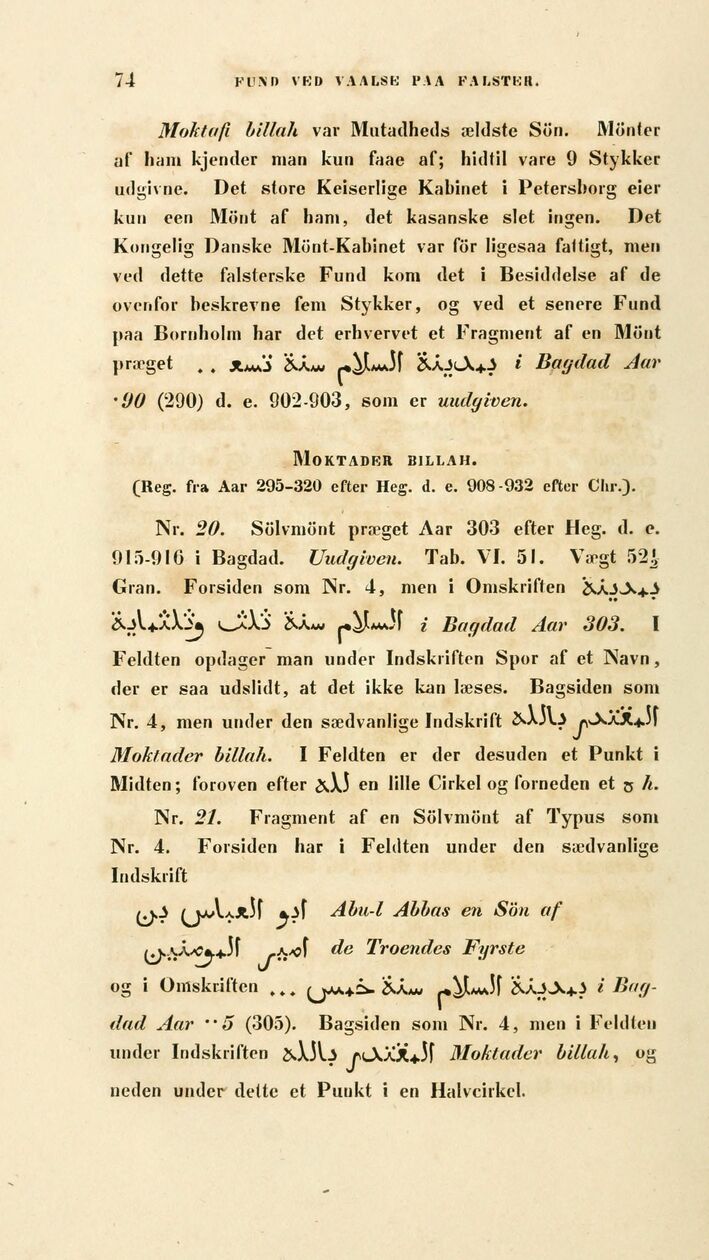 74 FUND VED VAALSE PAA FALSTER.
Moktafi billah var Mutadheds ældste Sön. Mönter
af ham kjender man kun faae af; hidtil vare 9 Stykker
udgivne. Det store Keiserlige Kabinet i Petersborg eier
kun een Mönt af ham, det kasanske slet ingen. Det
Kongelig Danske Mönt-Kabinet var för ligesaa fattigt, men
ved dette falsterske Fund kom det i Besiddelse af de
ovenfor beskrevne fem Stykker, og ved et senere Fund
paa Bornholm har det erhvervet et Fragment af en Mönt
præget .. بمدينة السلم سنة تسع i Bagdad Aar
·90 (290) d. e. 902-903, som er uudgiven.
MOKTADER BILLAH.
(Reg. fra Aar 295-320 efter Heg. d. e. 908-932 efter Chr.).
Nr. 20. Sölvmönt præget Aar 303 efter Heg. d. e.
915-916 i Bagdad. Uudgiven. Tab. VI. 51. Vægt 52½
Gran. Forsiden som Nr. 4, men i Omskriften بمدينة
السلم سنة ثلث وثلثماية i Bagdad Aar 303. I
Feldten opdager man under Indskriften Spor af et Navn,
der er saa udslidt, at det ikke kan læses. Bagsiden som
Nr. 4, men under den sædvanlige Indskrift المقتدر بالله
Moktader billah. I Feldten er der desuden et Punkt i
Midten; foroven efter لله en lille Cirkel og forneden et ح h.
Nr. 21. Fragment af en Sölvmönt af Typus som
Nr. 4. Forsiden har i Feldten under den sædvanlige
Indskrift
ابو العباس بن Abu-l Abbas en Sön af
امير المومنين de Troendes Fyrste
og i Omskriften بمدينة السلم سنة خمس ... i Bag-
dad Aar ··5 (305). Bagsiden som Nr. 4, men i Feldten
under Indskriften المقتدر بالله Moktader billah, og
neden under dette et Punkt i en Halvcirkel.